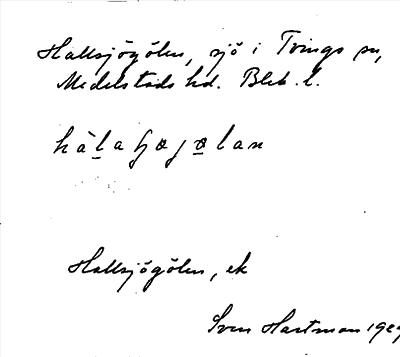 Hallsjögölen, sjö i Tvings sn,
Medelstads hd. Blek. l.
Hallsjögölen, ek
Sven Hartman 1929